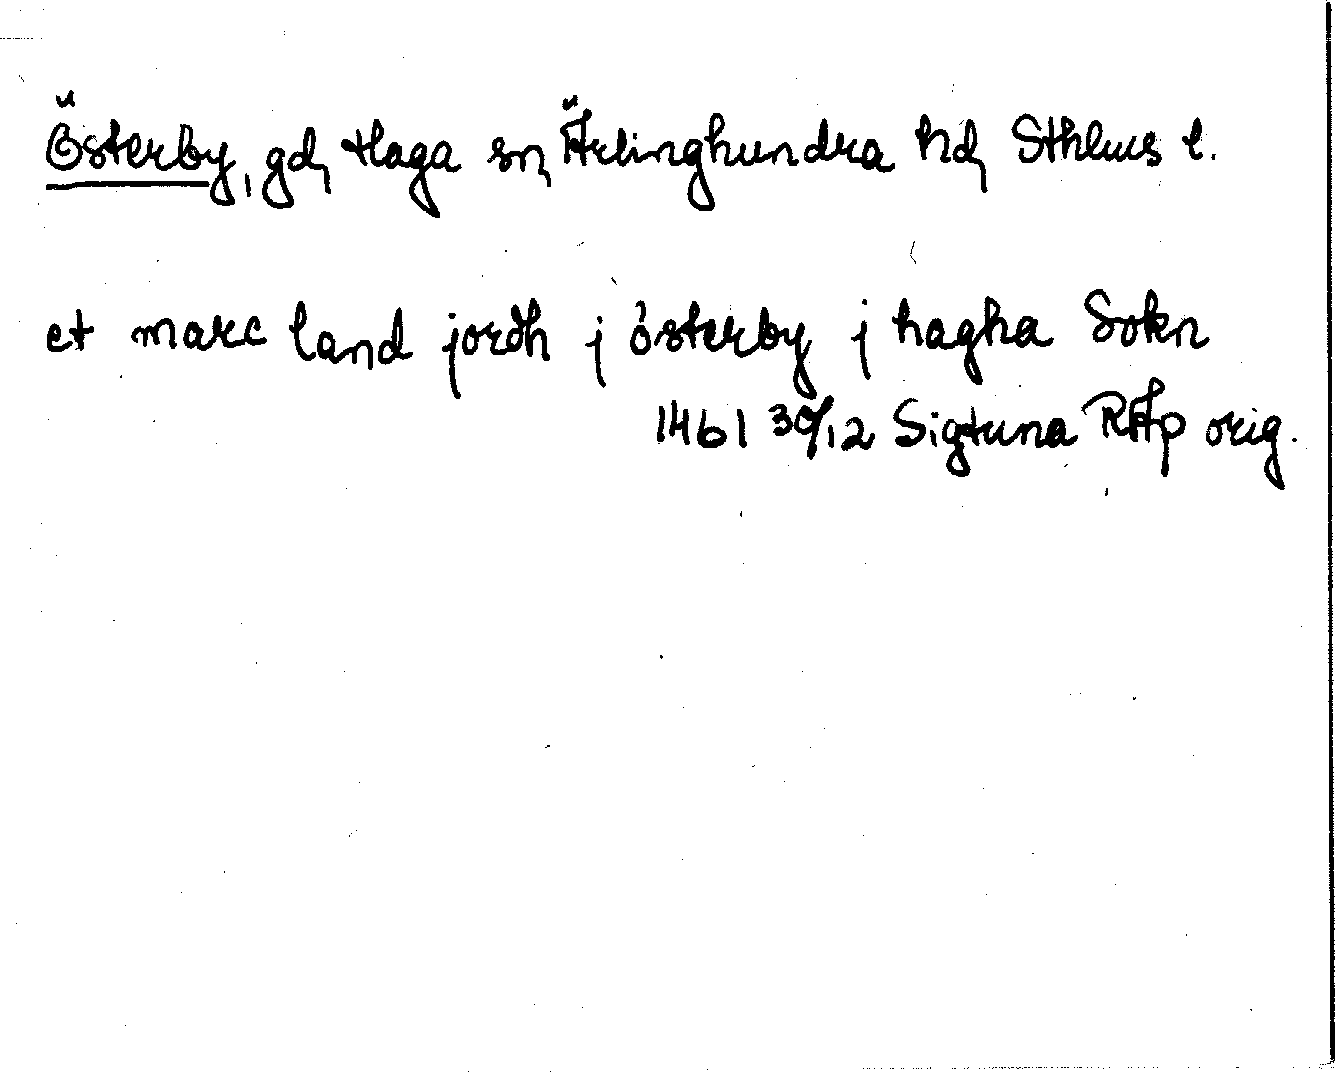 Österby, gd, Haga sn, Ärlinghundra hd, Sthlms l.
et marc land jordh j österby j hagha Sokn
1461 30/12 Sigtuna RAp orig.